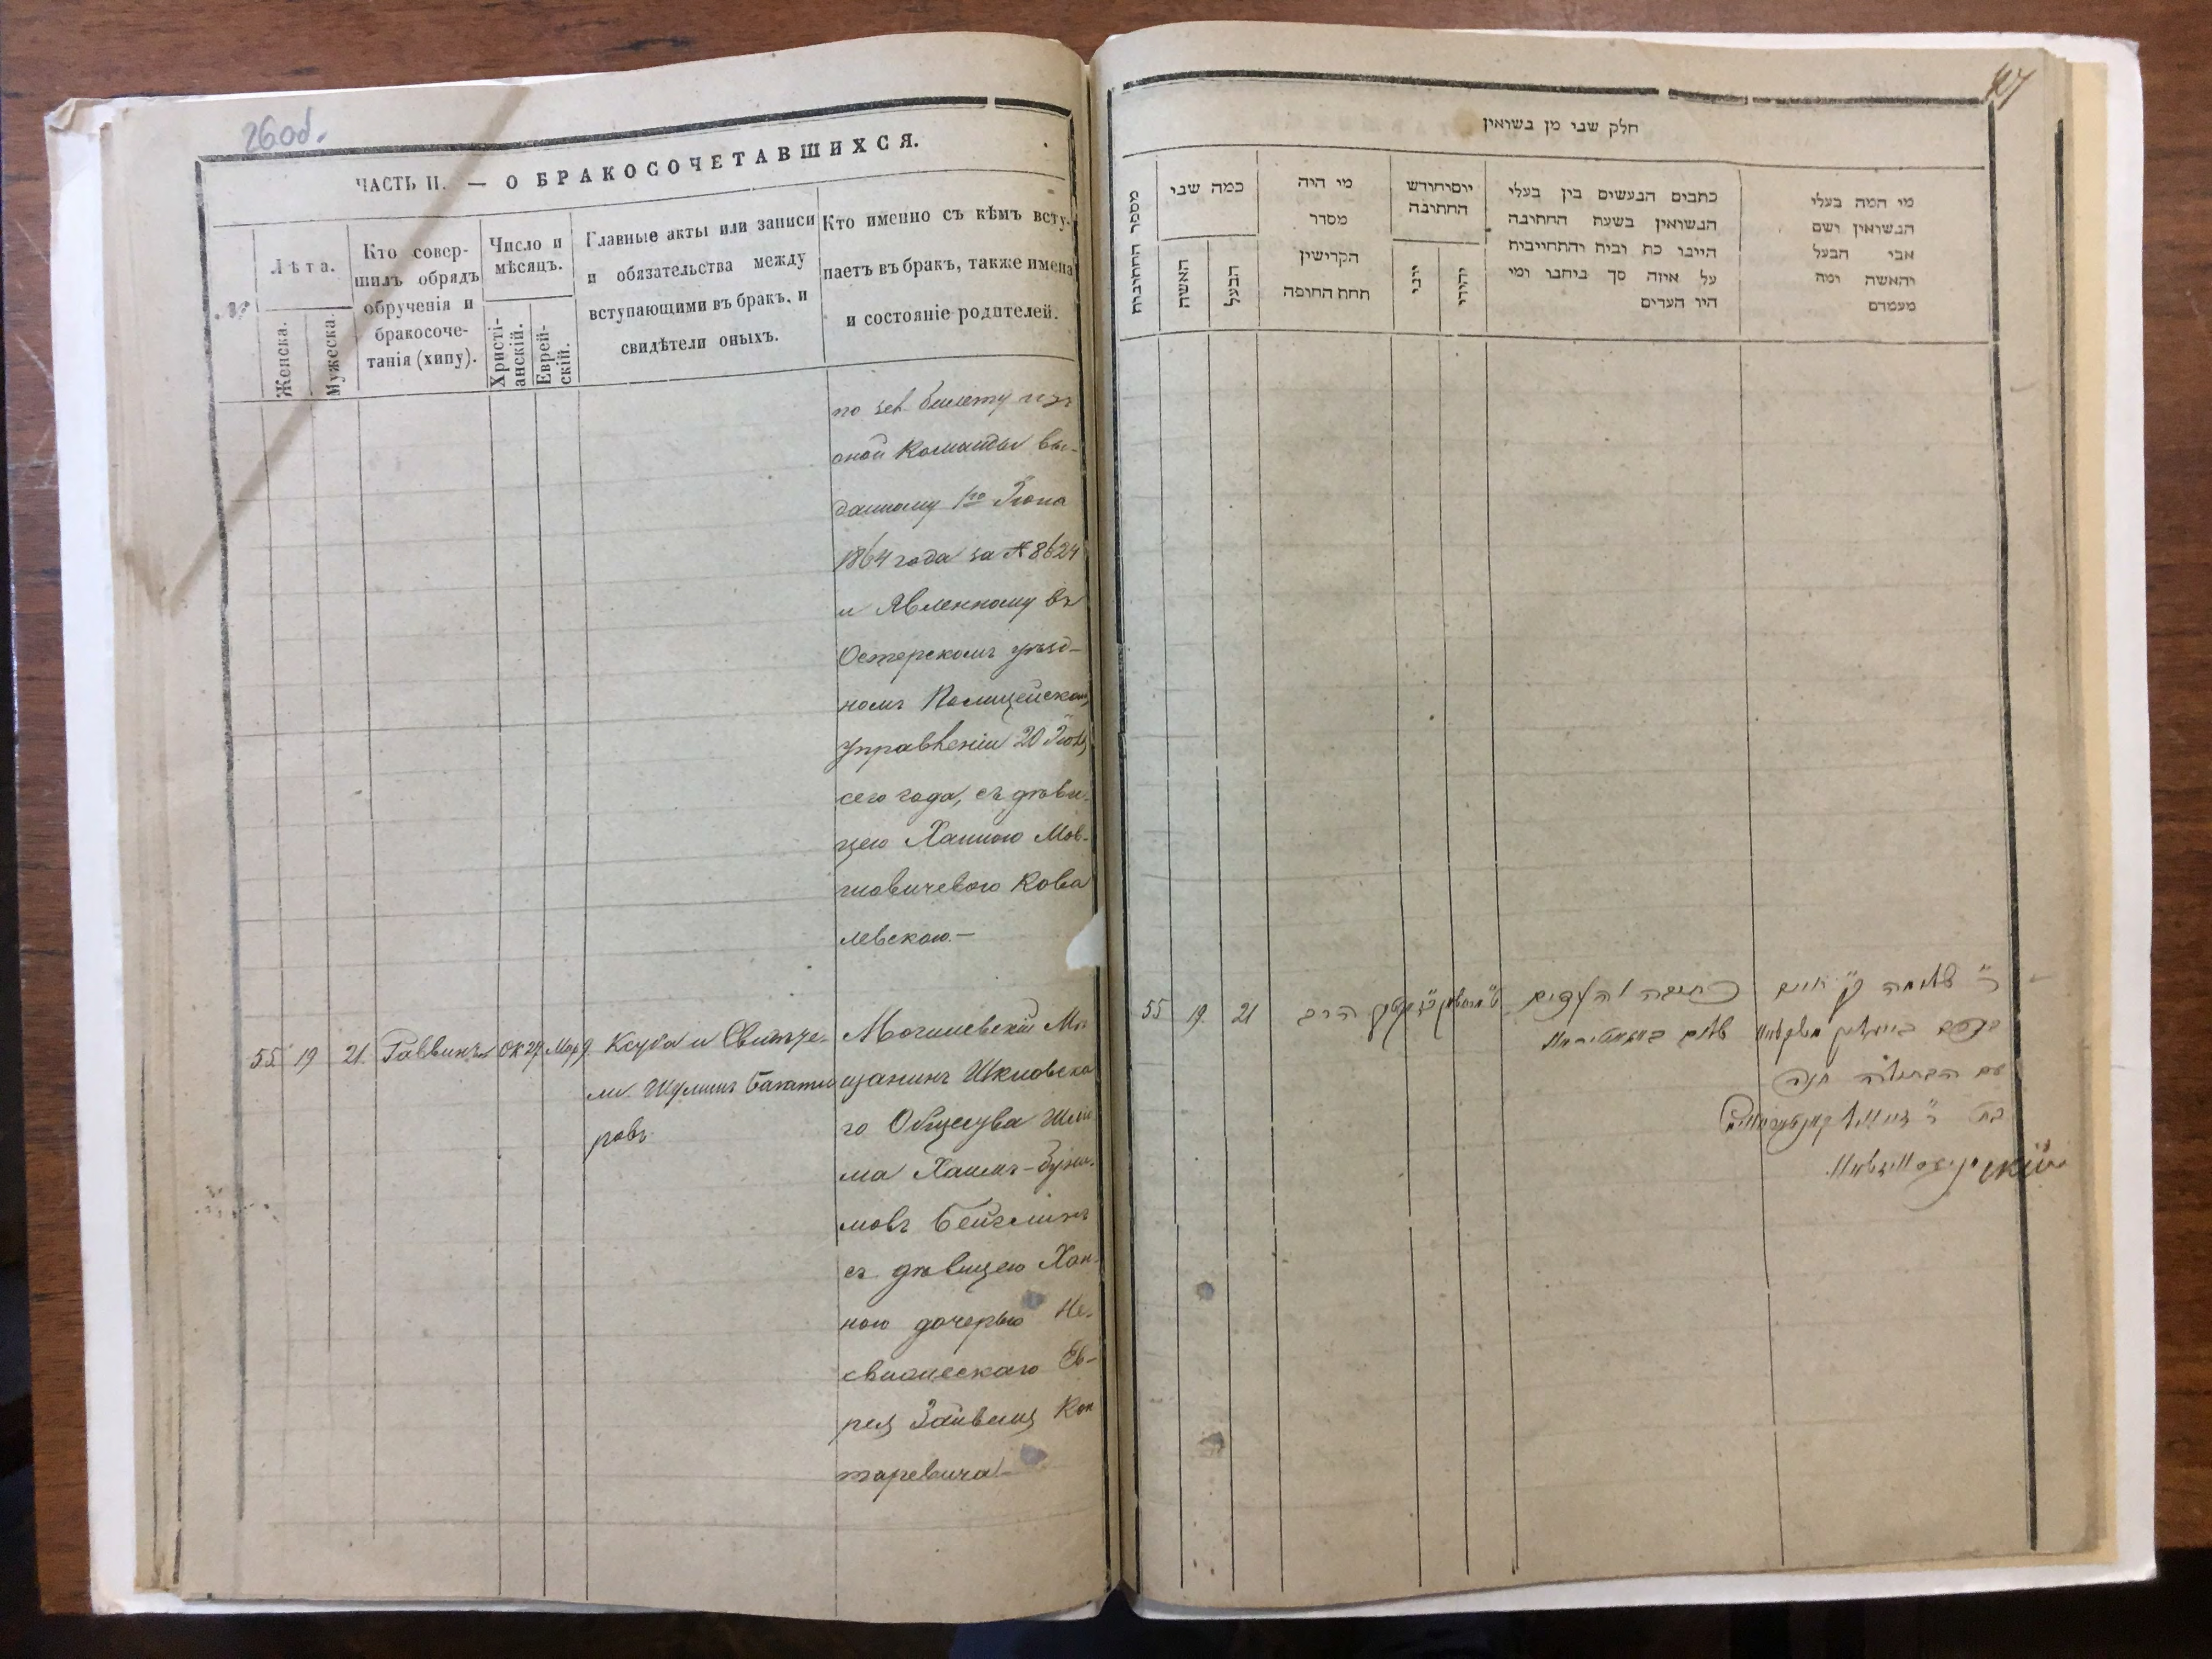 26 об.
ЧАСТЬ II. — О БРАКОСОЧЕТАВШИХСЯ.
№
Лѣта.
Женска.
Мужеска.
Кто совер-
шилъ обрядъ
обрученія и
бракосоче-
танія (хипу).
Число и
мѣсяцъ.
Христі-
анскій.
Еврей-
скій.
Главные акты или записи
и обязательства между
вступающими въ бракъ, и
свидѣтели оныхъ.
Кто именно съ кѣмъ всту-
паетъ въ бракъ, также имена
и состояніе родителей.
по билету изъ
оной Команды вы-
данному 1го Іюна
1864 года за № 8624
и Явленному въ
Остерскомъ уѣзд-
номъ Полицейскомъ
Управленіи 20
сего года, съ дѣви-
цею Ханною Мов-
шовичевою Кова
левскою.—
55 19 21 Раввинъ Ок 27 Мар 9. Ксуба и Свидѣте-
ли. Шулимъ Багати
ровъ.
Могилевскій Мѣ
щанинъ Шкловска
го Общества Шлио
ма Хаимъ-Буни-
мовъ Бейгелинъ
съ дѣвицею Хан-
ною дочерью Не-
свижескаго Ев-
рея Зайвеля Кон
таревича
27
חלק שני מן נשואין
מספר החתונות
כמה שני
האשה
הבעל
מי היה
מסדר
הקדושין
תחת החופה
יום וחודש
החתונה
יוני
יהודי
כתבים הנעשים בין בעלי
הנשואין בשעת החתונה
היינו כת ובית והתחייבות
על איזה סך ביחבו ומי
היו העדים
מי המה בעלי
הנשואין ושם
אבי הבעל
והאשה ומה
מעמדם
55 19. 21 הרב
כתובה והעדים
ר' שלמה בן ר' חיים
שלום
עם הבתולה חנה
בת ר'